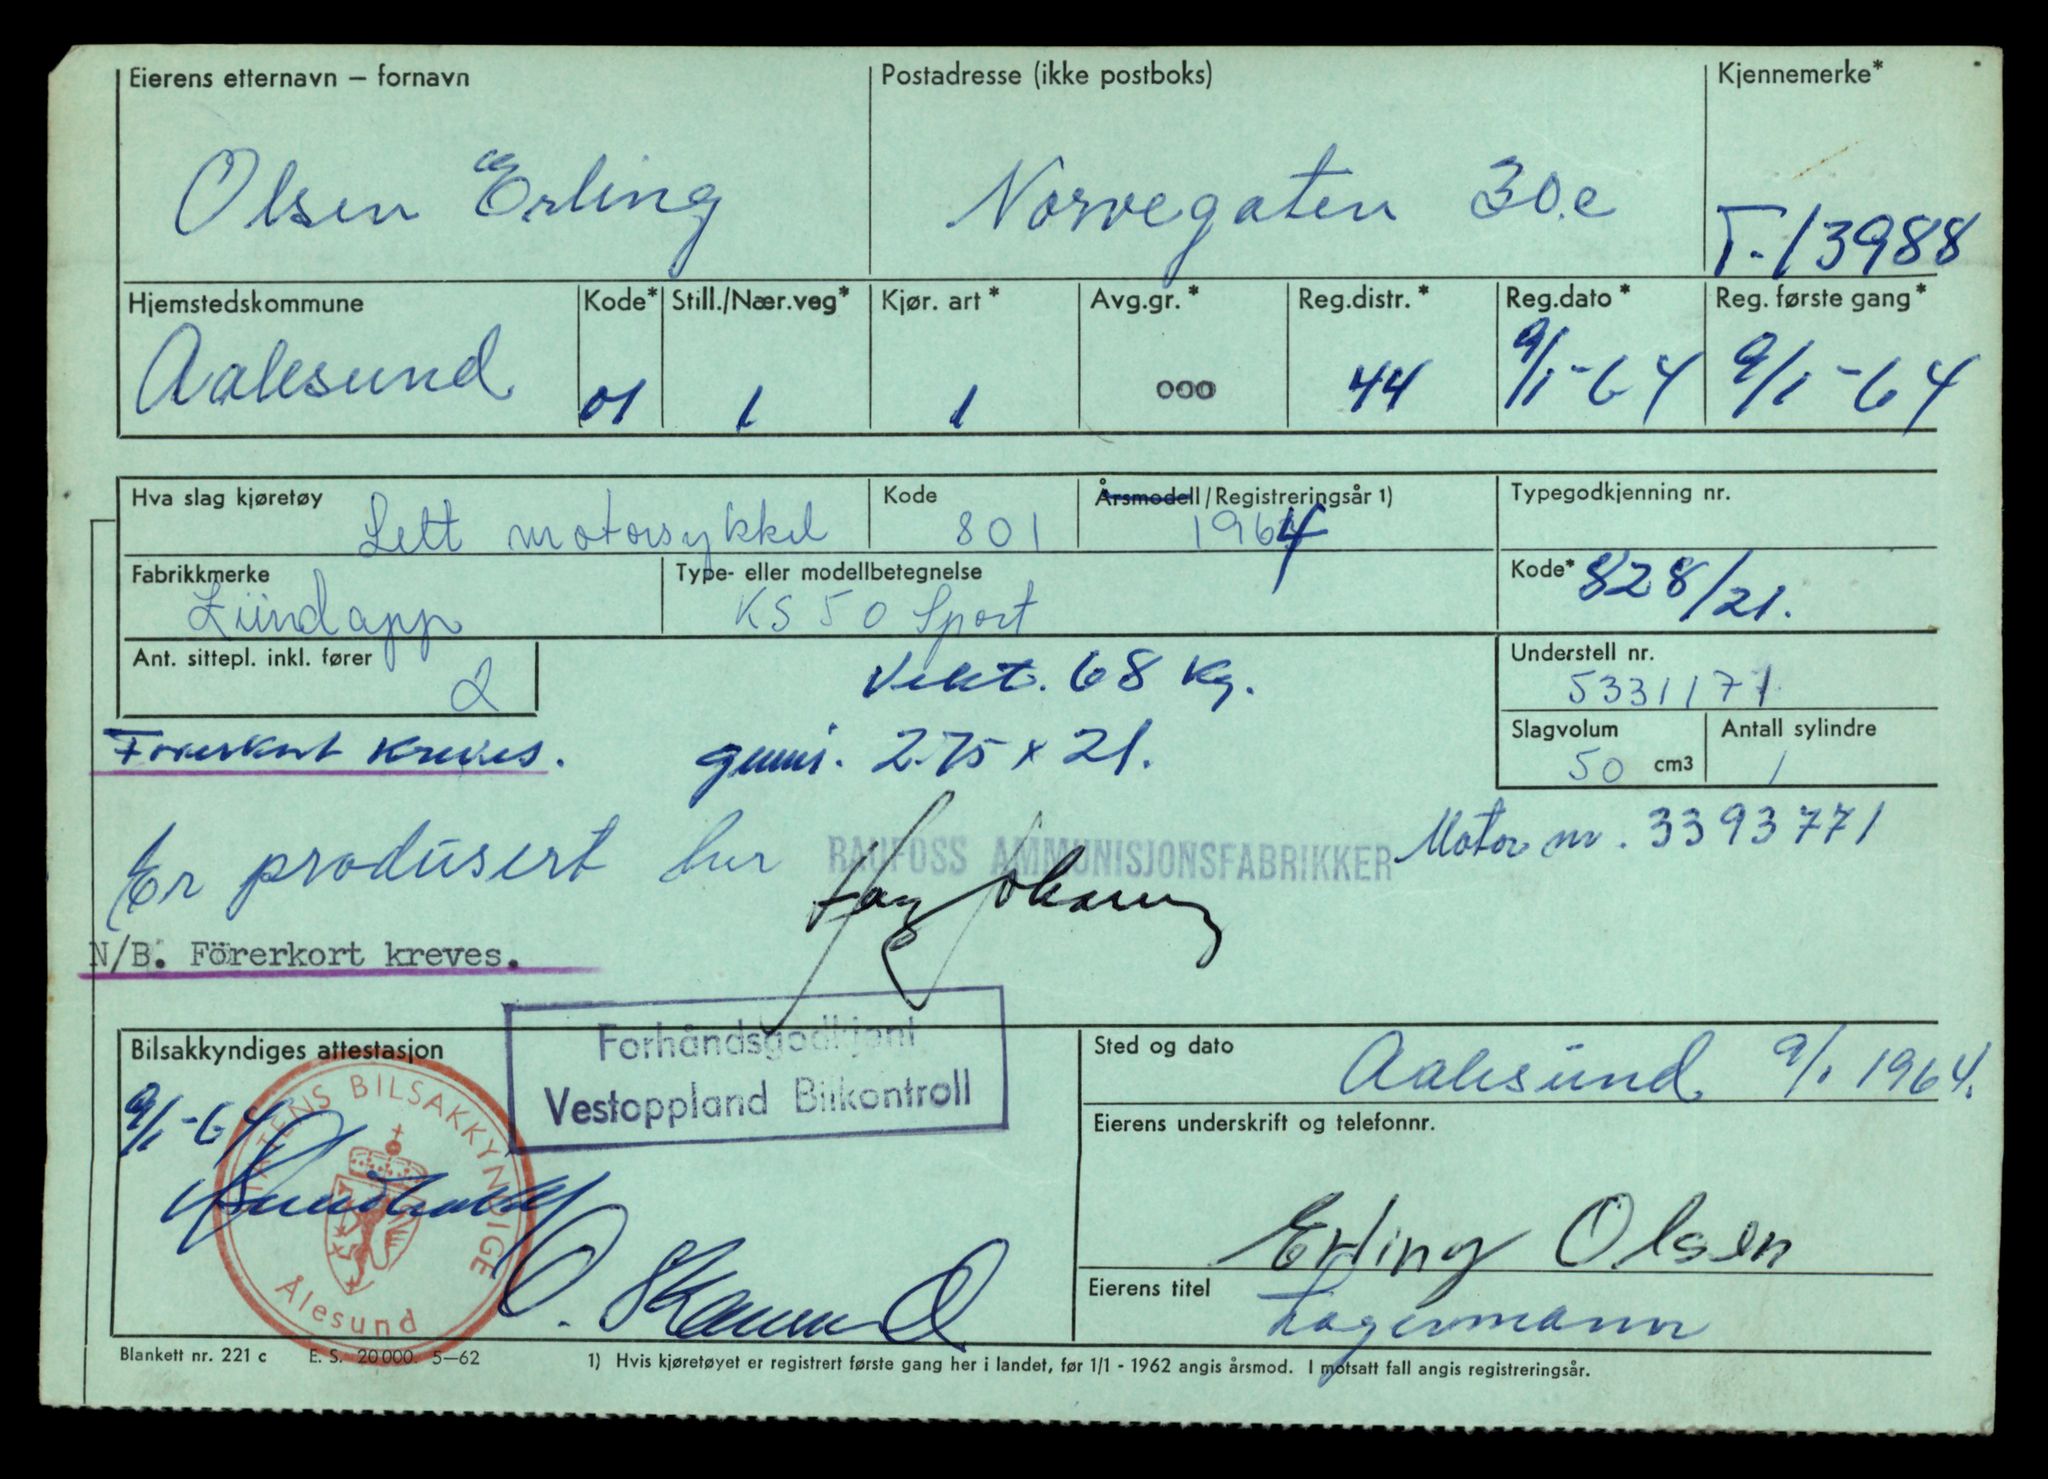 Eierens etternavn – fornavn Postadresse (ikke postboks) Kjennemerke*
Olsen Erling Norvegaten 30.c T.-13988
Hjemstedskommune Kode* Still./Nær.veg* Kjør. art* Avg.gr.* Reg.distr.* Reg.dato* Reg. første gang*
Aalesund 01 1 1 000 44 9/1-64 9/1-64
Hva slag kjøretøy Kode Årsmodell/Registreringsår 1) Typegodkjenning nr.
Lett motorsykkel 801 1964
Fabrikkmerke Type- eller modellbetegnelse Kode* 828/21.
Zündapp KS 50 Sport
Ant. sittepl. inkl. fører Understell nr.
2 Vekt. 68 kg. 5331171
Slagvolum Antall sylindre
Førerkort kreves. gumi. 2.75 x 21. 50 cm3 1
Er produsert hur RAUFOSS AMMUNISJONSFABRIKKER Motor nr. 3393771
N/B. Förerkort kreves.
Forhåndsgodkjent
Vestoppland Bilkontroll
Bilsakkyndiges attestasjon Sted og dato
9/1-64 Aalesund 9/1 1964.
STATENS BILSAKKYNDIGE
Ålesund
Eierens underskrift og telefonnr.
Erling Olsen
Eierens titel
Lagermann
Blankett nr. 221 c E. S. 20 000. 5–62 1) Hvis kjøretøyet er registrert første gang her i landet, før 1/1 - 1962 angis årsmod. I motsatt fall angis registreringsår.